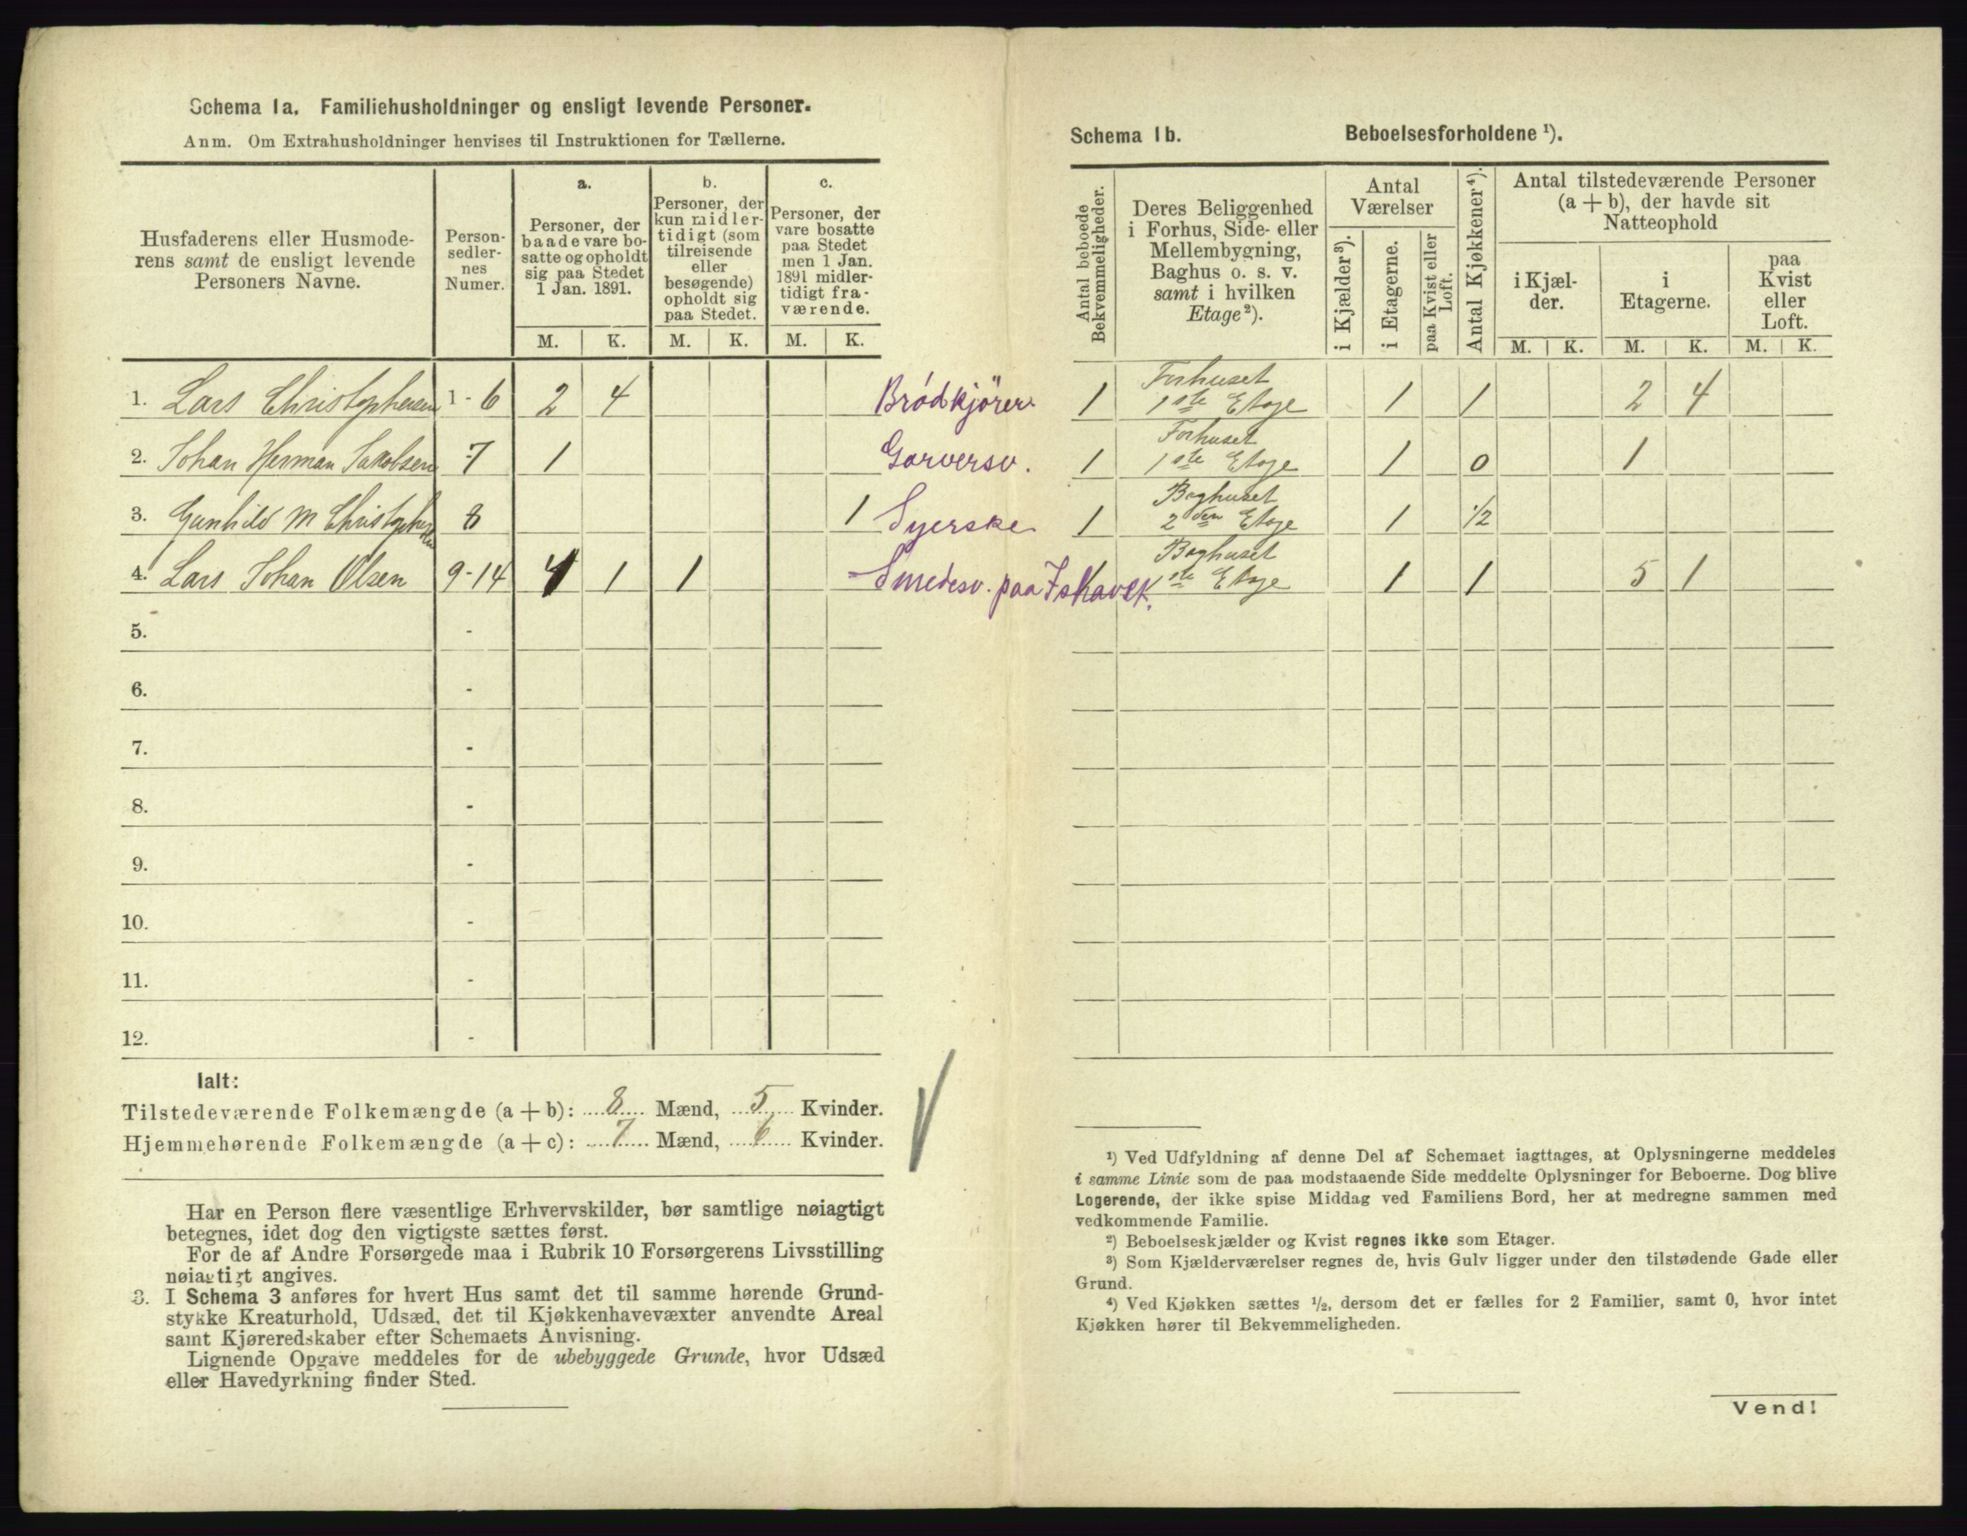 Schema 1a. Familiehusholdninger og ensligt levende Personer.
Anm. Om Extrahusholdninger henvises til Instruktionen for Tællerne.
Husfaderens eller Husmode-
rens samt de ensligt levende
Personers Navne.
Person-
sedler-
nes
Numer.
a.
Personer, der
baade vare bo-
satte og opholdt
sig paa Stedet
1 Jan. 1891.
b.
Personer, der
kun midler-
tidigt (som
tilreisende
eller
besøgende)
opholdt sig
paa Stedet.
c.
Personer, der
vare bosatte
paa Stedet
men 1 Jan.
1891 midler-
tidigt fra-
værende.
M. K. M. K. M. K.
1. Lars Christophersen 1-6 2 4 Brödkjörer
2. Johan Herman Jakobsen 7 1 Garversv.
3. Gunhild M Christophersen 8 1 Syerske
4. Lars Johan Olsen 9-14 4 1 1 Smedesv. paa
5. -
6. -
7. -
8. -
9. -
10. -
11. -
12. -
Ialt:
Tilstedeværende Folkemængde (a + b): 8 Mænd, 5 Kvinder.
Hjemmehørende Folkemængde (a + c): 7 Mænd, 6 Kvinder.
Har en Person flere væsentlige Erhvervskilder, bør samtlige nøiagtigt
betegnes, idet dog den vigtigste sættes først.
For de af Andre Forsørgede maa i Rubrik 10 Forsørgerens Livsstilling
nøiagtigt angives.
3. I Schema 3 anføres for hvert Hus samt det til samme hørende Grund-
stykke Kreaturhold, Udsæd, det til Kjøkkenhavevæxter anvendte Areal
samt Kjøreredskaber efter Schemaets Anvisning.
Lignende Opgave meddeles for de ubebyggede Grunde, hvor Udsæd
eller Havedyrkning finder Sted.
Schema 1b. Beboelsesforholdene ¹).
Antal beboede
Bekvemmeligheder.
Deres Beliggenhed
i Forhus, Side- eller
Mellembygning,
Baghus o. s. v.
samt i hvilken
Etage ²).
Antal
Værelser
i Kjælder ³).
i Etagerne.
paa Kvist eller
Loft.
Antal Kjøkkener ⁴).
Antal tilstedeværende Personer
(a + b), der havde sit
Natteophold
i Kjæl-
der.
i
Etagerne.
paa
Kvist
eller
Loft.
M. K. M. K. M. K.
1 Forhuset
1ste Etage 1 1 2 4
1 Forhuset
1ste Etage 1 0 1
1 Baghuset
2den Etage 1 1/2
Baghuset
1ste Etage 1 1 5 1
¹) Ved Udfyldning af denne Del af Schemaet iagttages, at Oplysningerne meddeles
i samme Linie som de paa modstaaende Side meddelte Oplysninger for Beboerne. Dog blive
Logerende, der ikke spise Middag ved Familiens Bord, her at medregne sammen med
vedkommende Familie.
²) Beboelseskjælder og Kvist regnes ikke som Etager.
³) Som Kjælderværelser regnes de, hvis Gulv ligger under den tilstødende Gade eller
Grund.
⁴) Ved Kjøkken sættes ½, dersom det er fælles for 2 Familier, samt 0, hvor intet
Kjøkken hører til Bekvemmeligheden.
Vend!